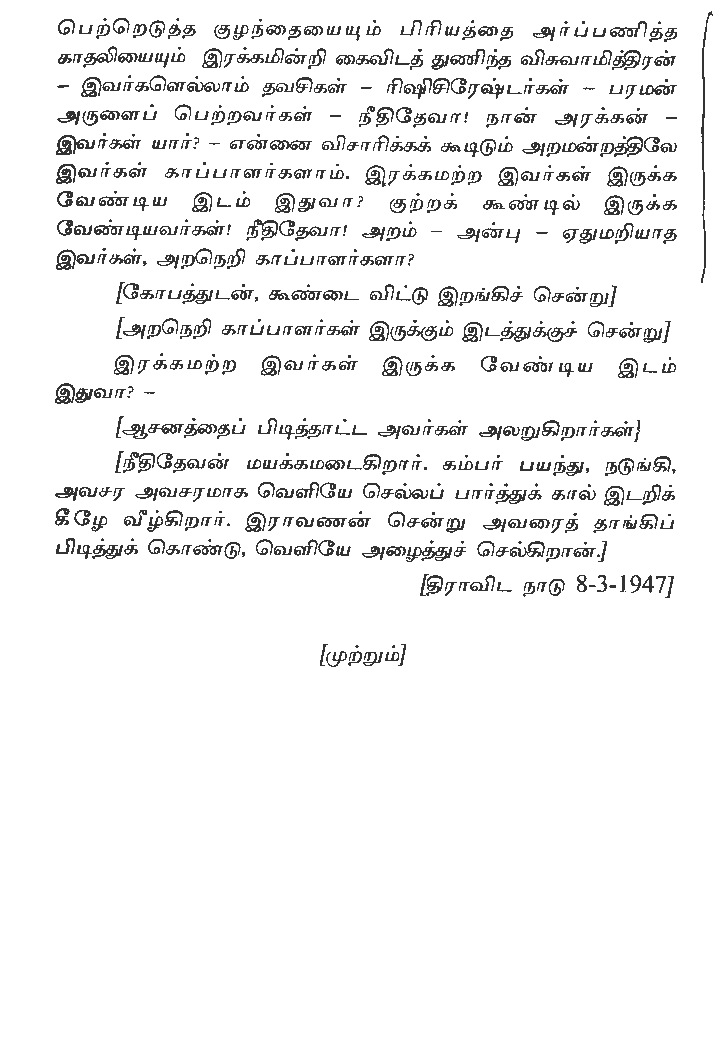 பெற்றெடுத்த குழந்தையையும் பிரியத்தை அர்ப்பணித்த
காதலியையும் இரக்கமின்றி கைவிடத் துணிந்த விசுவாமித்திரன்
– இவர்களெல்லாம் தவசிகள் – ரிஷிசிரேஷ்டர்கள் – பரமன்
அருளைப் பெற்றவர்கள் – நீதிதேவா! நான் அரக்கன் –
இவர்கள் யார்? – என்னை விசாரிக்கக் கூடிடும் அறமன்றத்திலே
இவர்கள் காப்பாளர்களாம். இரக்கமற்ற இவர்கள் இருக்க
வேண்டிய இடம் இதுவா? குற்றக் கூண்டில் இருக்க
வேண்டியவர்கள்! நீதிதேவா! அறம் – அன்பு – ஏதுமறியாத
இவர்கள், அறநெறி காப்பாளர்களா?
[கோபத்துடன், கூண்டை விட்டு இறங்கிச் சென்று]
[அறநெறி காப்பாளர்கள் இருக்கும் இடத்துக்குச் சென்று]
இரக்கமற்ற இவர்கள் இருக்க வேண்டிய இடம்
இதுவா? –
[ஆசனத்தைப் பிடித்தாட்ட அவர்கள் அலறுகிறார்கள்]
[நீதிதேவன் மயக்கமடைகிறார். கம்பர் பயந்து, நடுங்கி,
அவசர அவசரமாக வெளியே செல்லப் பார்த்துக் கால் இடறிக்
கீழே வீழ்கிறார். இராவணன் சென்று அவரைத் தாங்கிப்
பிடித்துக் கொண்டு, வெளியே அழைத்துச் செல்கிறான்.]
[திராவிட நாடு 8-3-1947]
[முற்றும்]